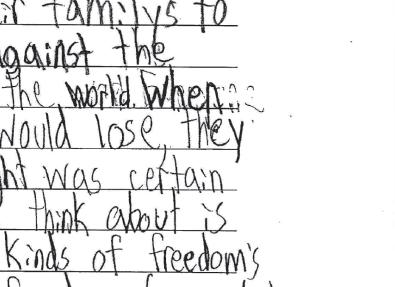 familys to
against the
the world. When
would lose, they
was certain
think about is
kinds of freedom's